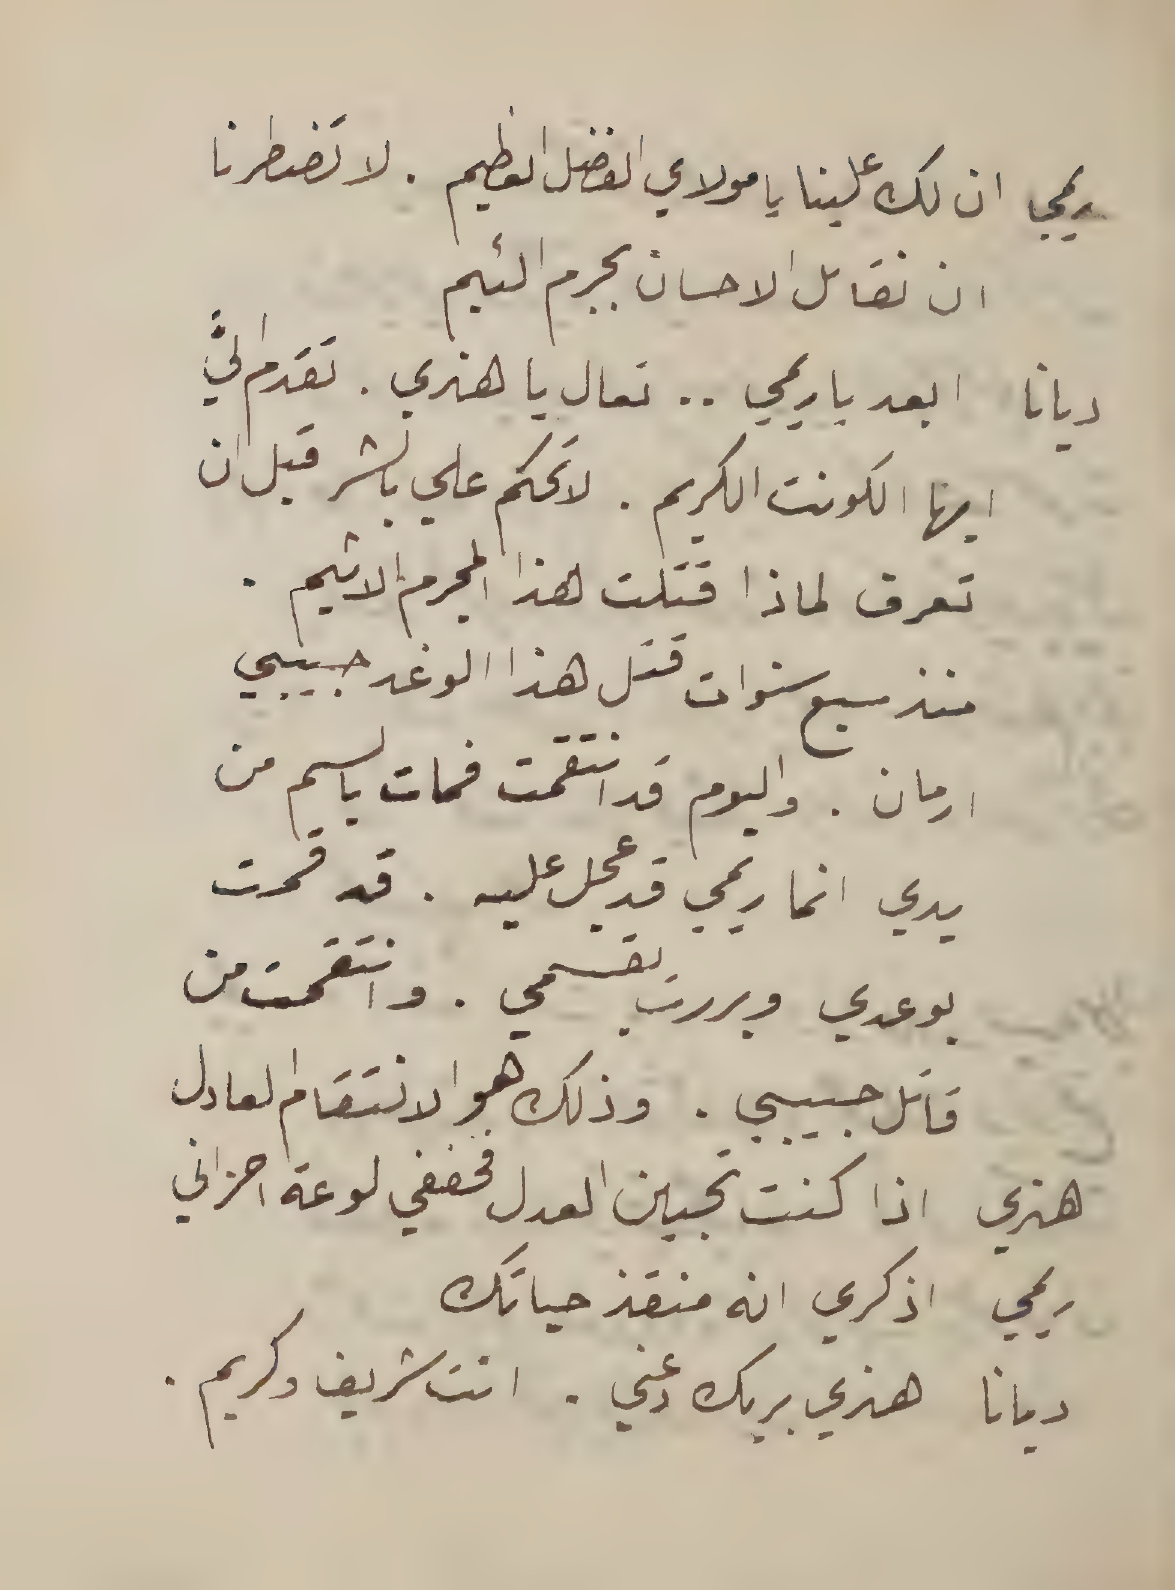 ريمي ان لك علينا يا مولاي الفضل العظيم . لا تضطرنا
ان نقابل الاحسان بجرم الئيم
ديانا ابعد يا ريمي .. تعال يا هنري . تقدم اليَّ
ايها الكونت الكريم . لا تحكم علي بالشر قبل ان
تعرف لماذا قتلت هذا المجرم الاثيم .
منذ سبع سنوات قتل هذا الوغد حبيبي
ارمان . واليوم قد انتقمت فمات بالسم من
يدي انما ريمي قد عجل عليه . قد قمت
بوعدي وبررت بقسمي . وانتقمت من
قاتل حبيبي . وذلك هو الانتقام العادل
هنري اذا كنت تحبين العدل فخففي لوعة احزاني
ريمي اذكري انه منقذ حياتك
ديانا هنري بربك دعني . انت شريف وكريم .